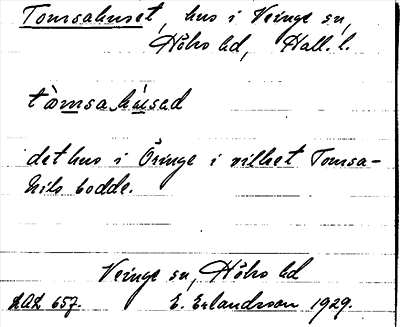 Tomsahuset, hus i Veinge sn,
Höks hd, Hall. l.
tòmsahúsəd
det hus i Öringe i vilket Tomsa-
Nils bodde.
Veinge sn, Höks hd
LAL 657. E. Erlandsson 1929.